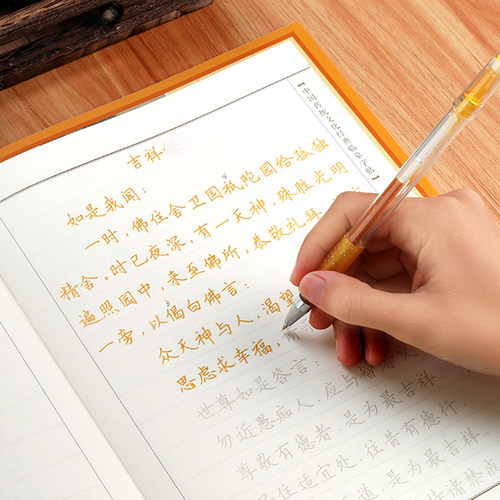 吉祥
【中国传统文化经典临摹字帖】
如是我闻：
一时，佛住舍卫国祇陀园给孤独
精舍。时已夜深，有一天神，殊胜光明
遍照园中，来至佛所，恭敬礼拜
一旁，以偈白佛言：
众天神与人，渴望
思虑求幸福，
世尊如是答言：
勿近愚痴人，应与智者
尊敬有德者，是为最吉祥
居住适宜处，往昔有德行
是为最吉祥